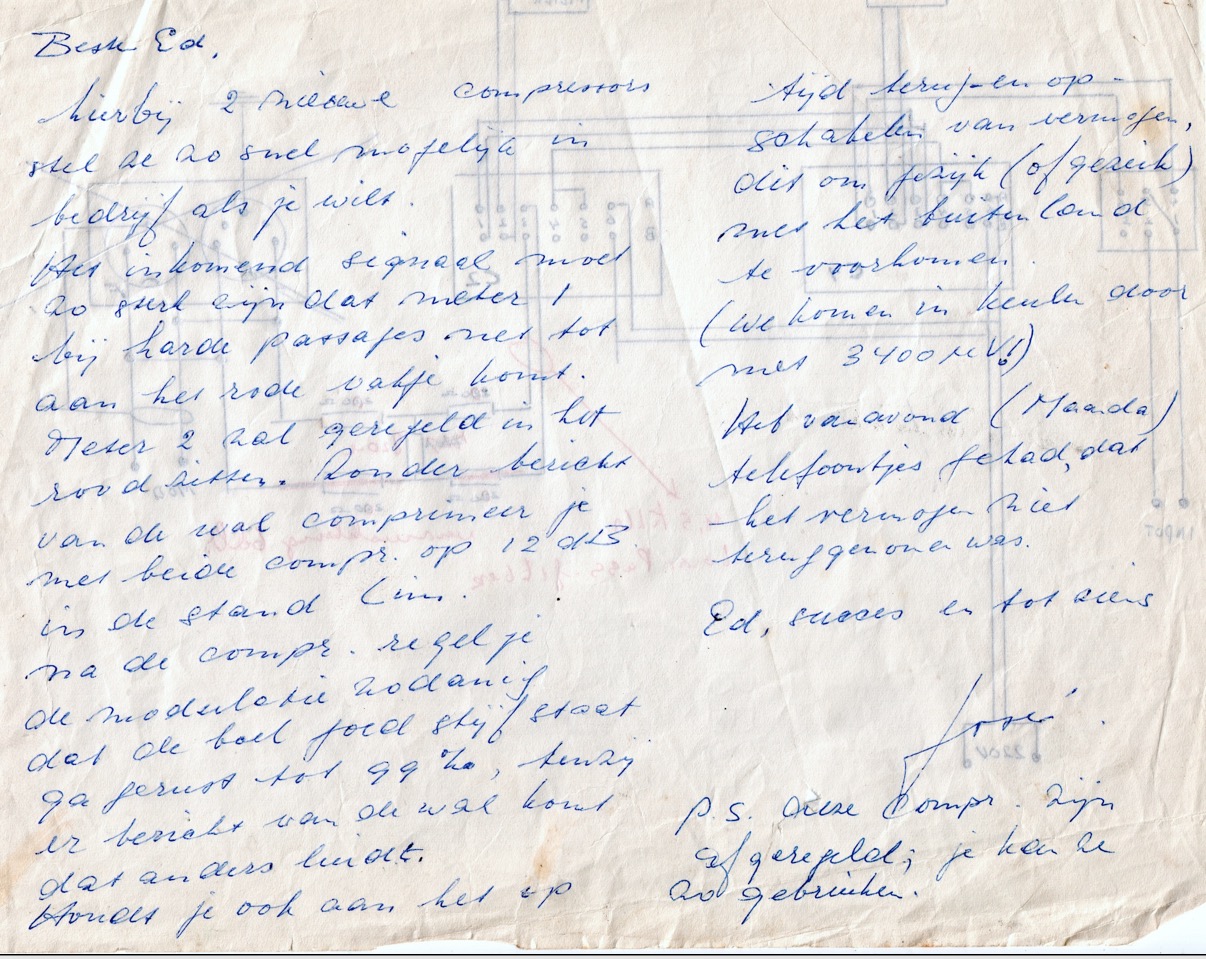 Beste Ed,
hierbij 2 nieuwe compressors
stel ze zo snel mogelijk in
bedrijf als je wilt.
Het inkomend signaal moet
zo sterk zijn dat meter 1
bij harde passages net tot
aan het rode vakje komt.
Meter 2 zal geregeld in het
rood zitten. Zonder bericht
van de wal comprimeer je
met beide compr. op 12 dB.
in de stand Lim.
na de compr. regel je
de modulatie zodanig
dat de boel goed stijf staat
ga gerust tot 99 %, tenzij
er bericht van de wal komt
dat anders luidt.
Houdt je ook aan het op
tijd terug- en op-
schakelen van vermogen,
dit om gezijk (of gezeik)
met het buitenland
te voorkomen.
(We komen in Keulen door
met 3400 µV!)
Heb vanavond (Maanda)
telefoontjes gehad, dat
het vermogen niet
teruggenomen was.
Ed, succes en tot ziens
José.
P.S. Deze compr. zijn
afgeregeld; je kan ze
zo gebruiken.
220V
INPUT